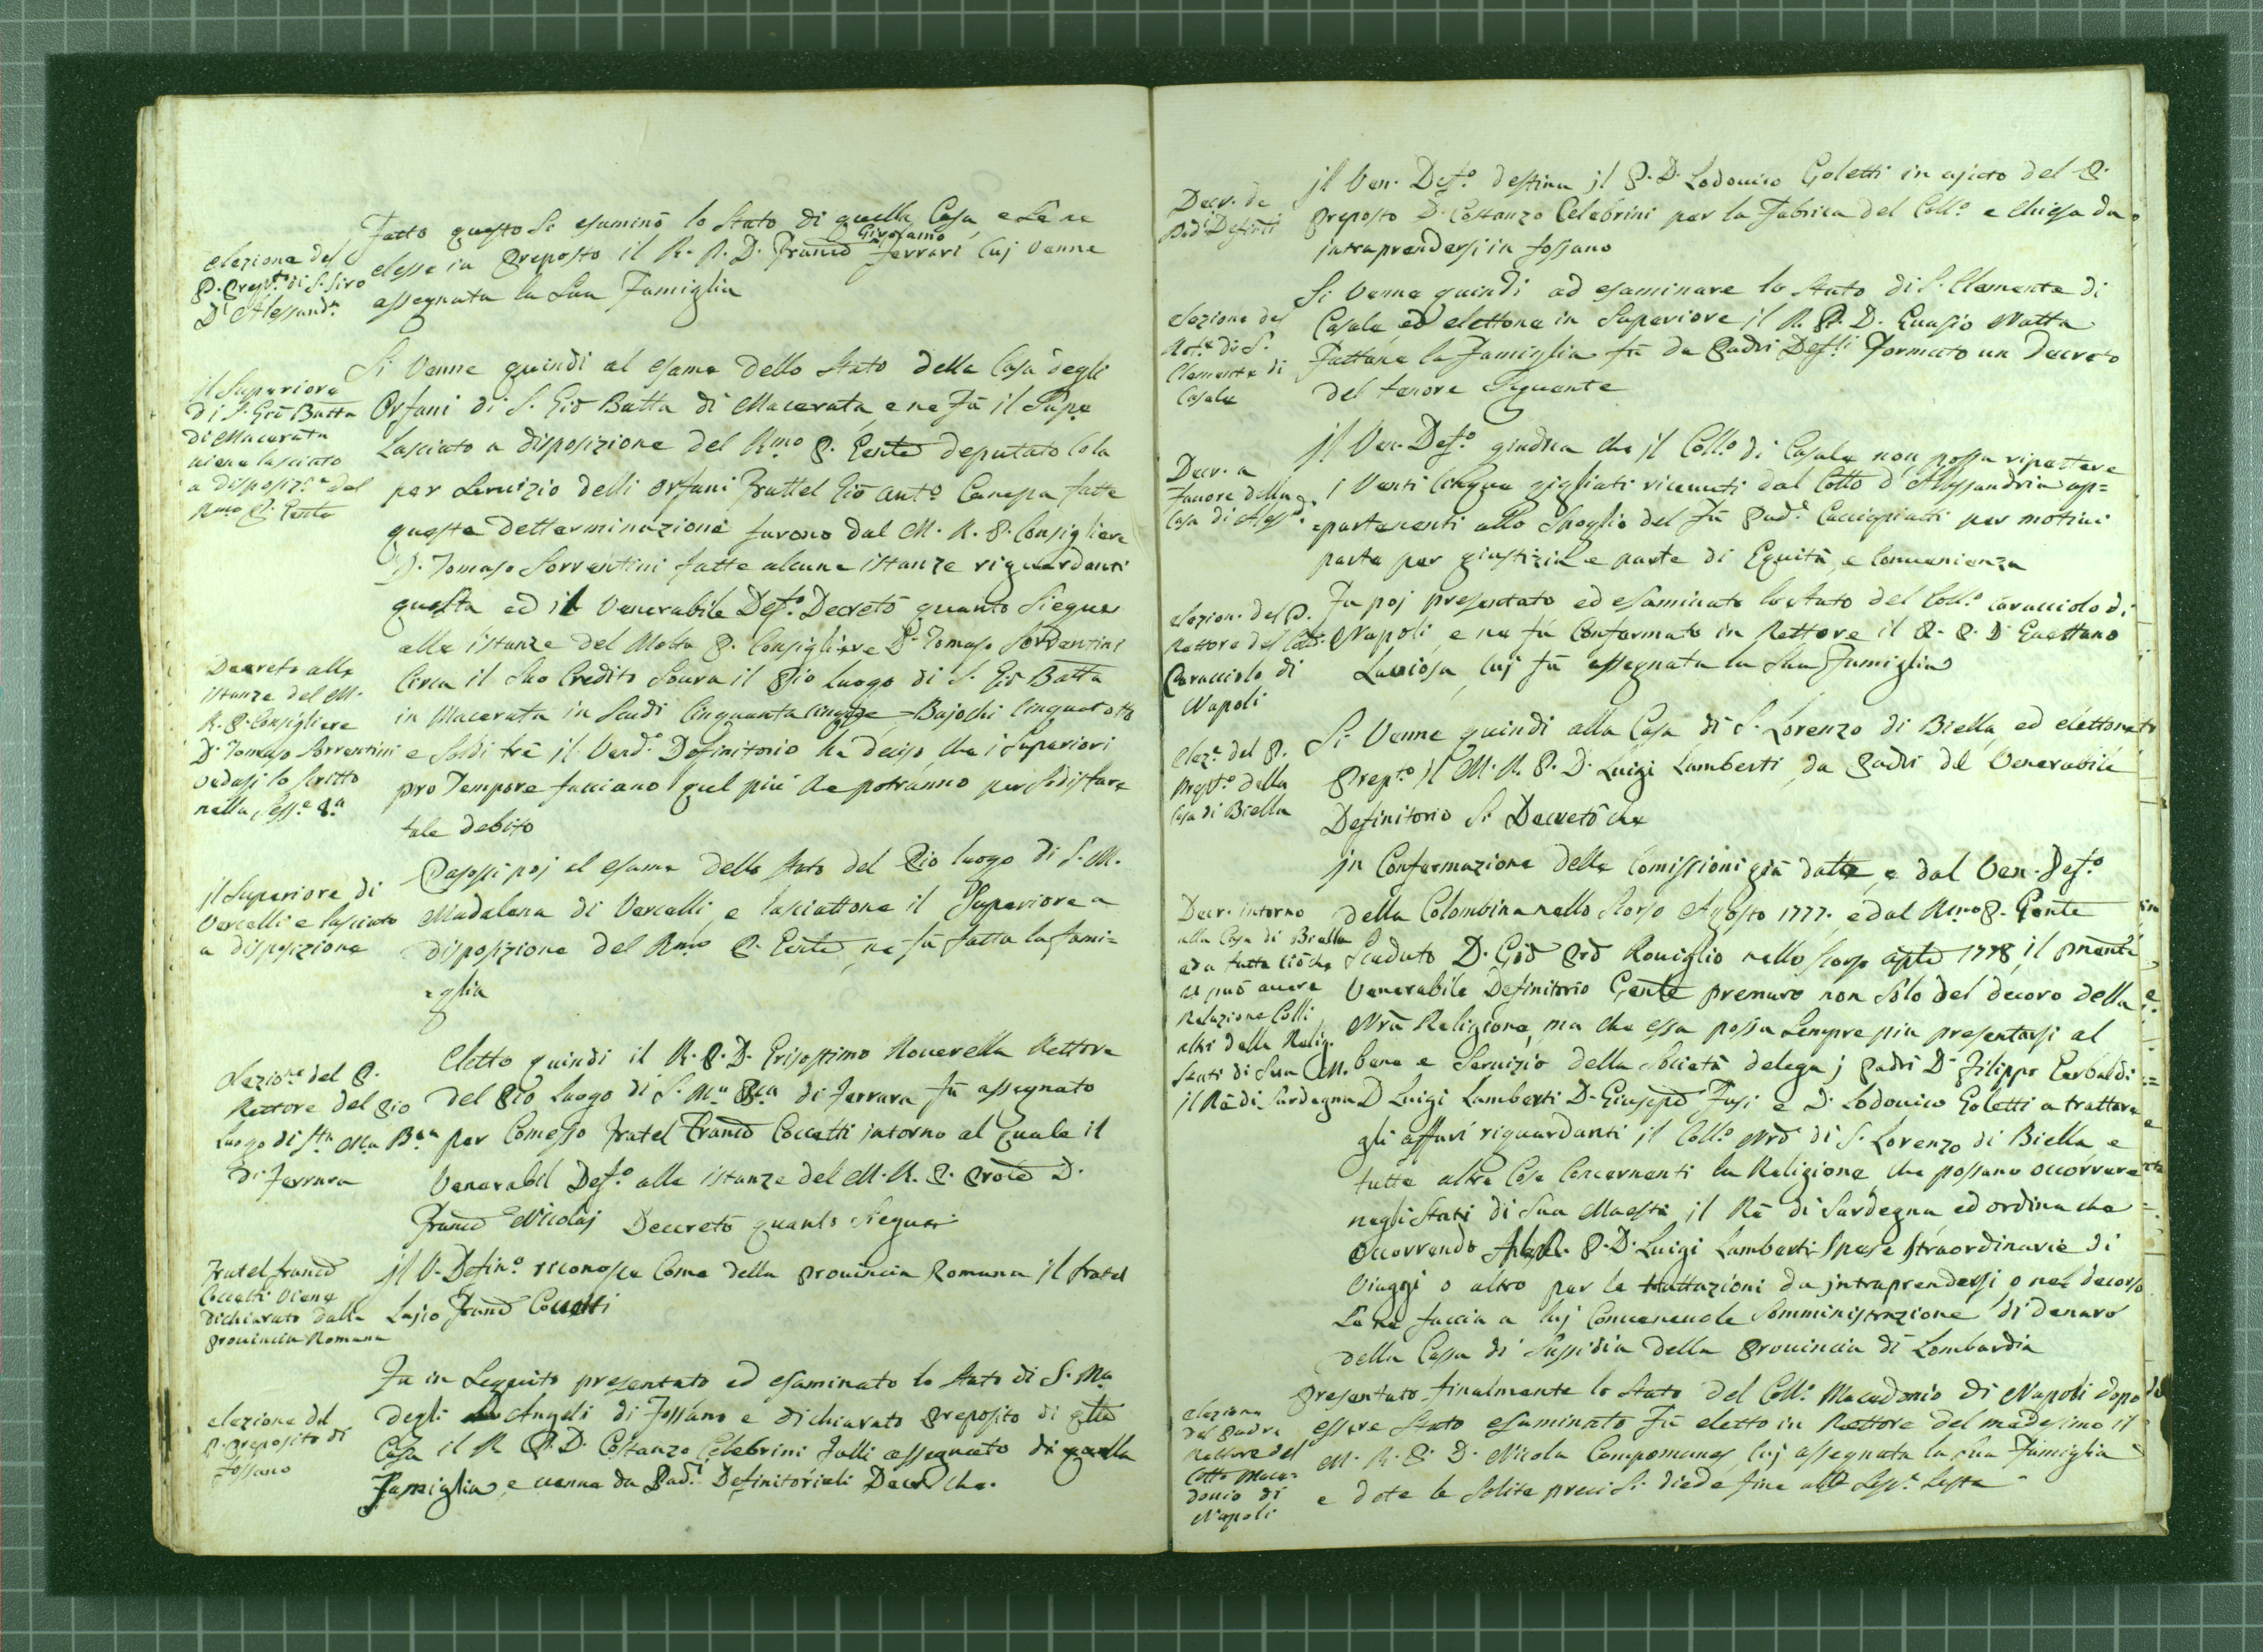 Fatto questo si esaminò lo Stato di quella Casa, e Se ne
Girolamo
elesse in Preposto il R. P. D. Franc̃o Ferrari Cuj venne
assegnata la Sua Famiglia
elezione del
P. Prep.to di S. Siro
D'Alessand.a
Si Venne quindi al esame dello Stato della Casa degli
Orfani di S. Gio Batta di Macerata, e ne Fù il Supe
Lasciato a disposizione del R.mo P. Gente deputato Cola
per Servizio delli Orfani Frattel Gio Ant.o Canepa fatte
queste detterminazioni furono dal M. R. P. Consigliere
D. Tomaso Sorrentini fatte alcune istanze riguardanti
questa ed il Venerabile Def.o Decretò quanto Siegue
il Superiore
di S. Gio Batta
di Macerata
viene lasciato
a disposiz.e del
Rmo P. Gente
alle istanze del Molto P. Consigliere D. Tomaso Sorrentini
Circa il Suo Credito Soura il Pio Luogo di S. Gio Batta
in Macerata in Scudi Cinquanta cinque Bajochi Cinquotto
e Soldi trè il Vend.o Definitorio ha deciso, che i Superiori
pro Tempore facciano quel più che potranno per Sodisfare
tale debito
Decreto alle
istanze del M.
R. P. Consigliere
D. Tomaso Sorrentini
vedasi lo scritto
nella Sess.e 8.a
Passossi poj al esame dello Stato del Pio luogo di S. M.
Madalena di Vercelli, e lasciattone il Superiore a
disposizione del Rmo P. Gente, ne fù fatta la fami=
=glia
il Superiore di
Vercelli e lasciato
a disposizione
Eletto quindi il R. P. D. Grisostimo Roverella Rettore
del Pio Luogo di S. M.a B.ca di Ferrara fù assegnato
per Comesso Fratel Franc̃o Coccetti intorno al quale il
Venerabil Def.o alle istanze del M. R. P. Prole D.
Franc̃o Nicolaj Decretò quanto Siegue
elezio.e del P.
Rettore del Pio
Luogo di S.ta Ma B.ca
di Ferrara
il V. Defin.o riconosce Come della Provincia Romana il fratel
Lajco Franc̃o Coccetti
Fratel franc̃o
Coccetti viene
dichiarato della
Provincia Romana
Fu in Seguito presentato ed esaminato lo Stato di S. Ma
degli Angeli di Fossano e dichiarato Preposito di qlla
Casa il R. P. D. Costanzo Celebrini Fulli assegnato di quella
Famiglia, e venne da Pad.i Definitoriali Decr.o che.
elezione del
P. Preposito di
Fossano
jl Ven. Def.o destina jl P. D. Lodovico Goletti in ajuto del P.
Preposto D. Costanzo Celebrini per la Fabrica del Coll.o e Chiesa da
intraprendersi in Fossano
Decr. de
Pad.i Definti
Si Venne quindi ad esaminare lo Stato di S. Clemente di
Casale, ed elettone in Superiore il R. P. D. Evasio Natta
Fattane la Famiglia fù da Padri Def.li Formato un Decreto
del tenore Seguente
elezione del
Ret.e di S.
Clemente di
Casale
jl Ven. Def.o giudica che jl Coll.o di Casale non possa ripettere
i Venti Cinque gigliati ricevuti dal Collo d'Alessandria ap=
=partenenti allo Spoglio del Fù Pad.e Cacciapiatti per motivi
parte per giustizia, e parte di Equità, e Convenienza
Decr. a
favore della
Casa di Aless.a
Fu poj presentato ed esaminato lo Stato del Coll.o Caracciolo di
Napoli e ne fù Confermato in Rettore il R. P. D Gaettano
Laviosa, Cuj fù assegnata la Sua Famiglia
elezion. del P.
Rettore del Coll.
Caracciolo di
Napoli
Si Venne quindi alla Casa di S. Lorenzo di Biella, ed elettone
Prep.to jl M. R. P. D. Luigi Lamberti da Padri del Venerabile
Definitorio Si Decretò che
elez.e del P.
Prep.to della
Casa di Biella
jn Confermazione delle Comissioni già date, e dal Ven. Def.o
della Colombina nello Scorso Agosto 1777. e dal Rmo P. Gente
Scaduto D. Gio Pro Roviglio nello Scorso aple 1778, il pnente
Venerabile Definitorio Gente premuro non Solo del decoro della
Nrã Religione, ma che essa possa Sempre più presentarsi al
bene e Servizio della Società delega j Padri D. Filippo Gerbaldi
D Luigi Lamberti D. Giusepe Fusi e D. Lodovico Goletti a trattare
gli affari riguardanti jl Coll.o Nrõ di S. Lorenzo di Biella e
tutte altre Cose Concernenti la Religione, che possano occorrere
negli Stati di Sua Maestà il Rè di Sardegna, ed ordina che
occorrendo P. D. Luigi Lamberti Spese Straordinarie di
Viaggi o altro per le trattazioni da jntraprendersi, o nel decorso
Se ne faccia a luj Convenevole Somministrazione di denaro
della Cassa di Sussidia della Provincia di Lombardia
Decr. intorno
alla Casa di Biella
ed a tutto ciò che
si può avere
Relazione Colli
altri della Relig.
Stati di Sua M.
il Rè di Sardegna
Presentato finalmente lo Stato del Coll.o Macedonio di Napoli dopo
essere Stato esaminato Fù eletto in Rettore del medesimo il
M. R. P. D. Nicola Campomanes, Cuj assegnata la Sua Famiglia
e dote le Solite preci Si diede fine alla Sess.e Sesta
elezione
del Padre
Rettore del
Collo Mace=
donio di
Napoli